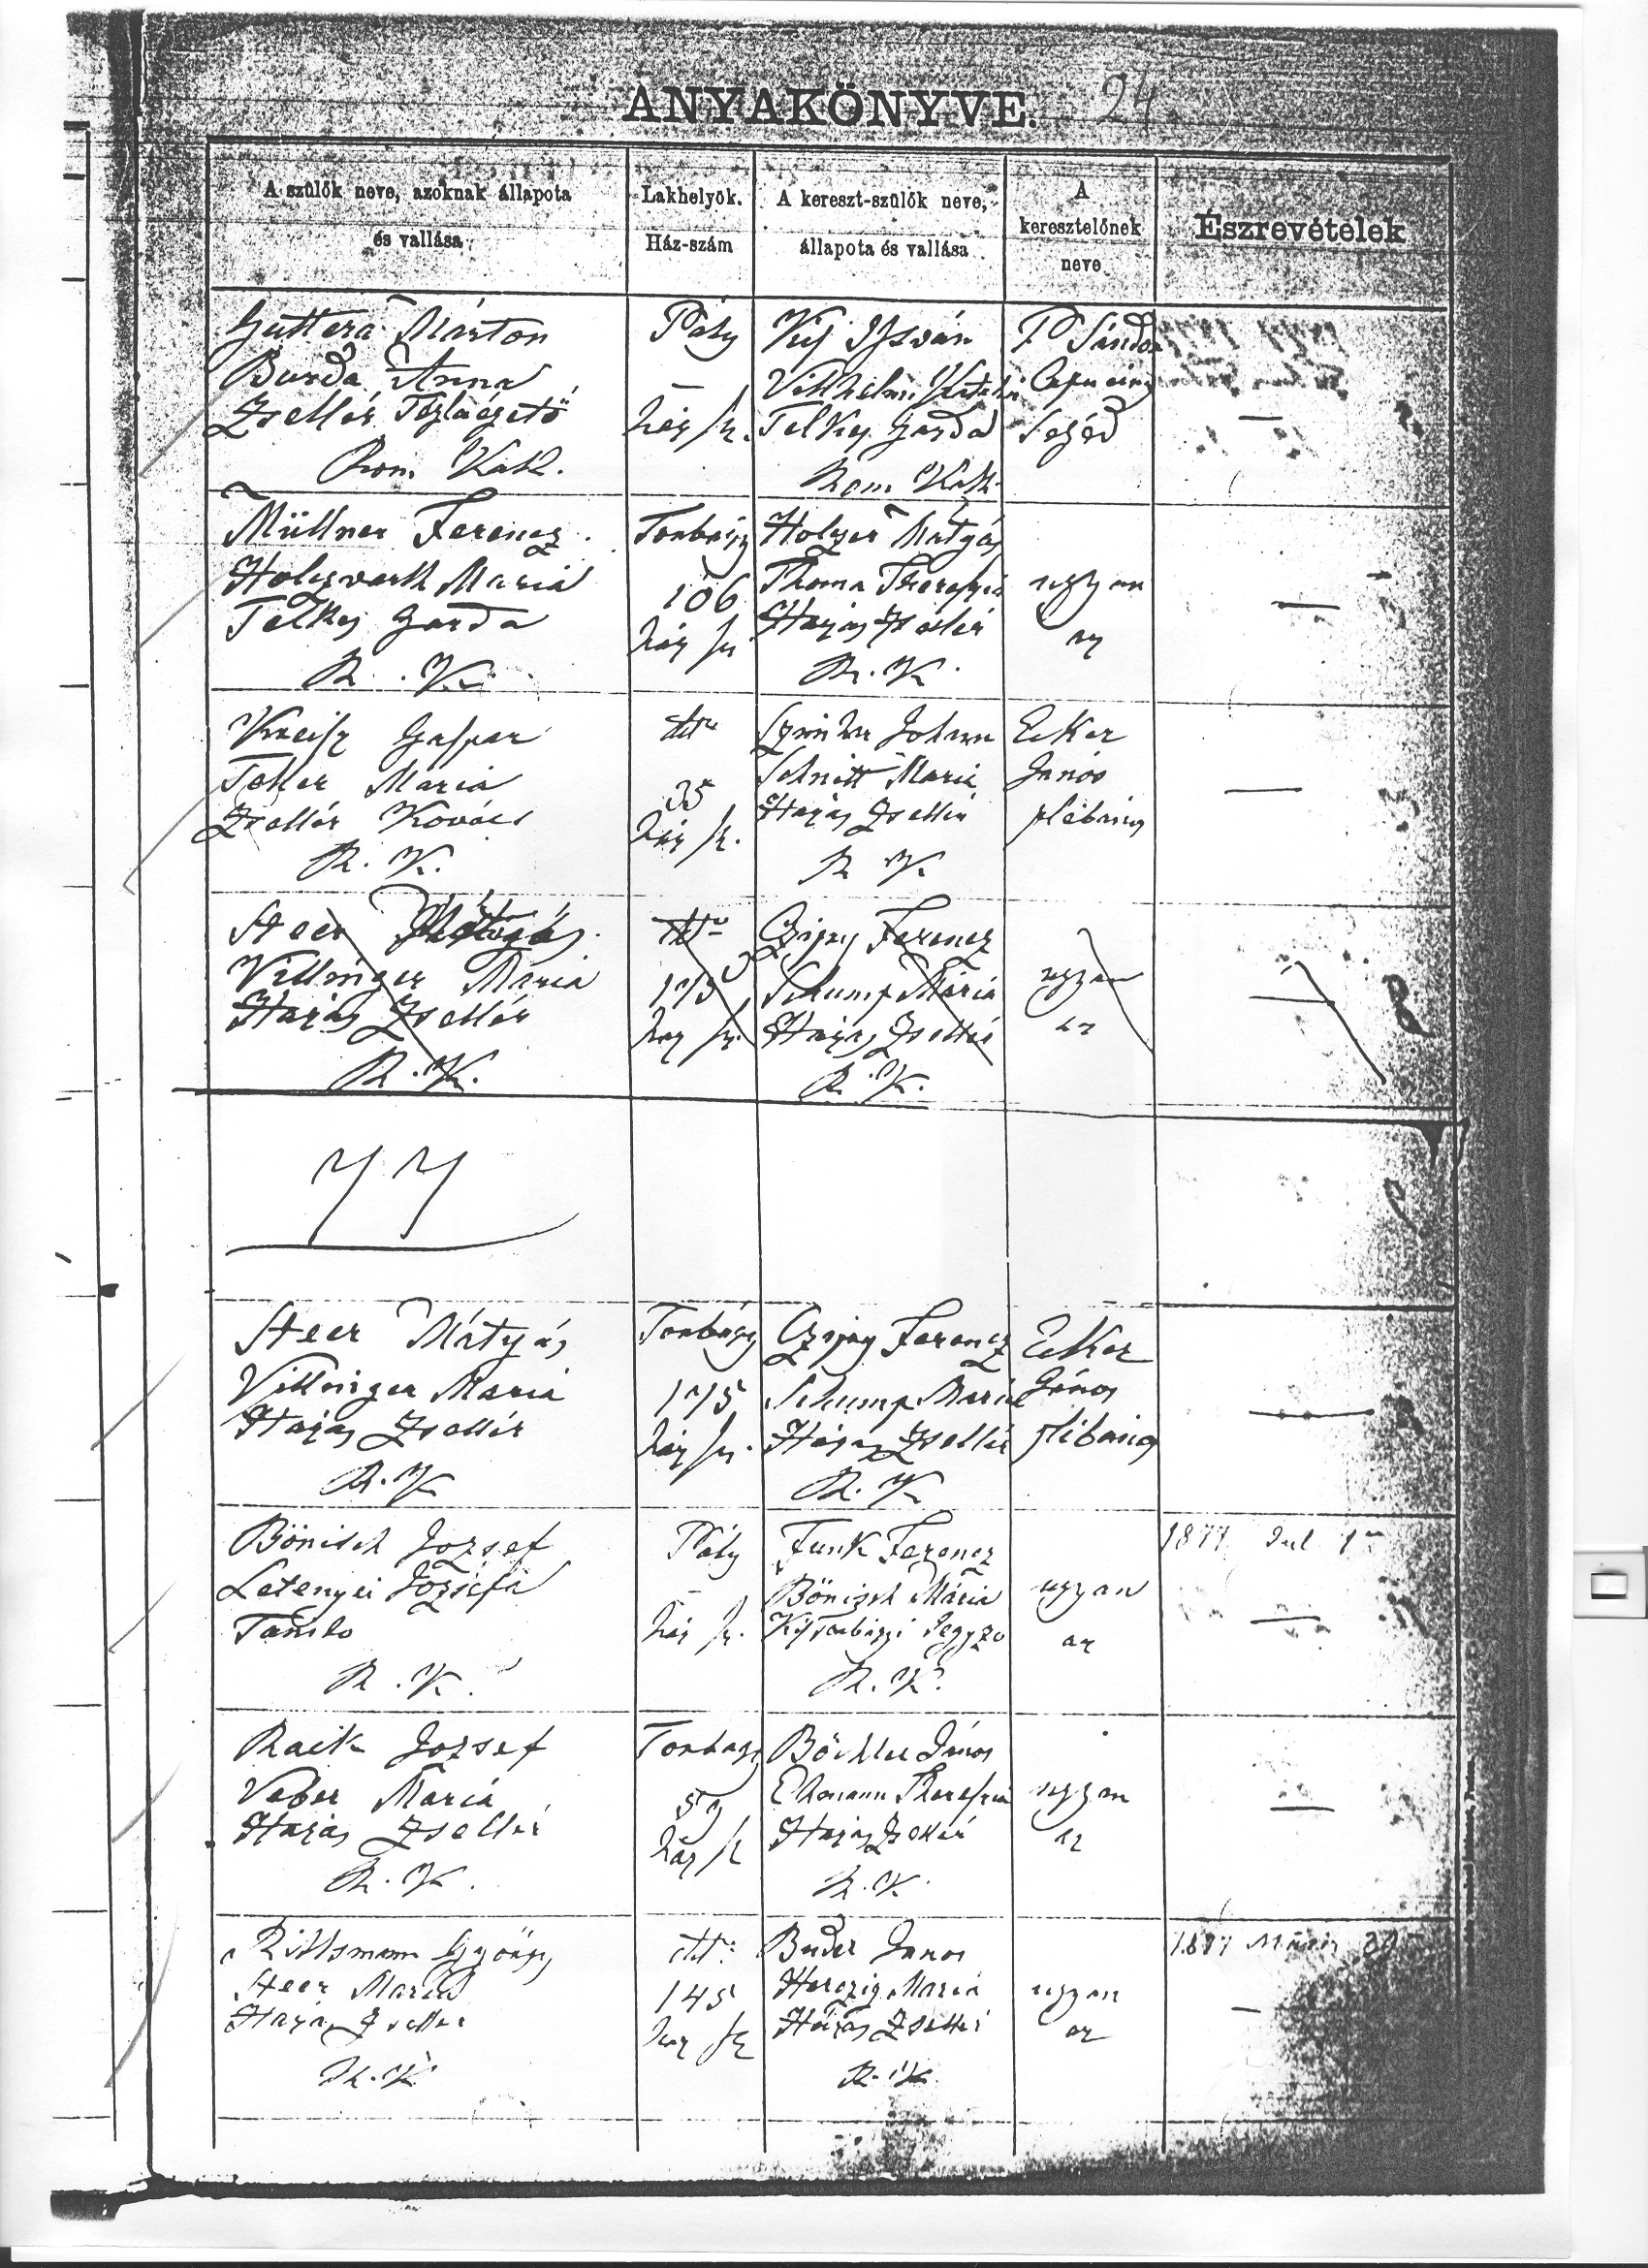 ANYAKÖNYVE. 24
A szülők neve, azoknak állapota
és vallása
Lakhelyök.
Ház-szám
A kereszt-szülők neve,
állapota és vallása
A
keresztelőnek
neve
Észrevételek
Guttera Márton
Burda Anna
Zsellér Téglaégető
Rom Kath.
Páty
ház sz.
István
Vilhelm
Telkes Gazda
Rom Kath.
P Sándor
Capucinus
Segéd
Müllner Ferencz
Holzwarth Maria
Telkes Gazda
R. K.
Torbágy
106
ház sz
Holzer Mátyás
Thoma Theresia
Házas Zsellér
R. K.
ugyan
az
Gaspar
Teller Maria
Zsellér Kovács
R. K.
dtto
35
ház sz.
Johann
Schnitt Maria
Házas Zsellér
R K
Ecker
János
plébános
Heer Mátyás
Villinger Maria
Házas Zsellér
R. K.
dtto
175
ház sz.
Ferencz
Schump Mária
Házas Zsellér
R. K.
ugyan
az
77
Heer Mátyás
Villinger Maria
Házas Zsellér
R. K
Torbágy
175
ház sz.
Ferencz
Schump Maria
Házas Zsellér
R. K
Ecker
János
plébános
Bönisch Jozsef
Letenyei Józséfa
Tanito
R. K.
Páty
ház sz.
Funk Ferencz
Bönisch Mária
Kistorbágyi Jegyző
R. K.
ugyan
az
1877 Jul 1
Raik Jozsef
Veber Maria
Házas Zsellér
R. K.
Torbagy
59
ház sz
János
Ehmann Theresia
Házas Zsellér
R. K.
ugyan
az
Rittsmann György
Heer Maria
Házas Zsellér
R. K
dtto
145
ház sz
Buder Janos
Herczig Maria
Házas Zsellér
R. K.
ugyan
az
1877